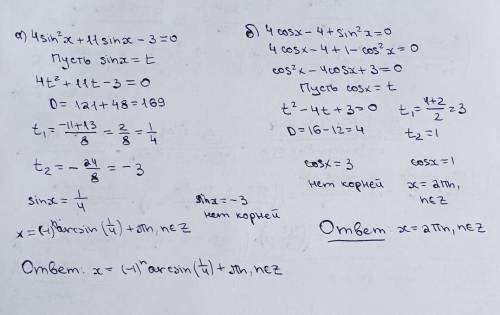 а) 4sin²x + 11sinx - 3 = 0
Пусть sinx = t
4t² + 11t - 3 = 0
D = 121 + 48 = 169
t₁ = (-11+13)/8 = 2/8 = 1/4
t₂ = -24/8 = -3
sinx = 1/4
sinx = -3
нет корней
x = (-1)ⁿ arcsin(1/4) + πn, n∈Z
Ответ: x = (-1)ⁿ arcsin(1/4) + πn, n∈Z
б) 4cosx - 4 + sin²x = 0
4cosx - 4 + 1 - cos²x = 0
cos²x - 4cosx + 3 = 0
Пусть cosx = t
t² - 4t + 3 = 0
D = 16 - 12 = 4
t₁ = (4+2)/2 = 3
t₂ = 1
cosx = 3
нет корней
cosx = 1
x = 2πn,
n∈Z
Ответ: x = 2πn, n∈Z